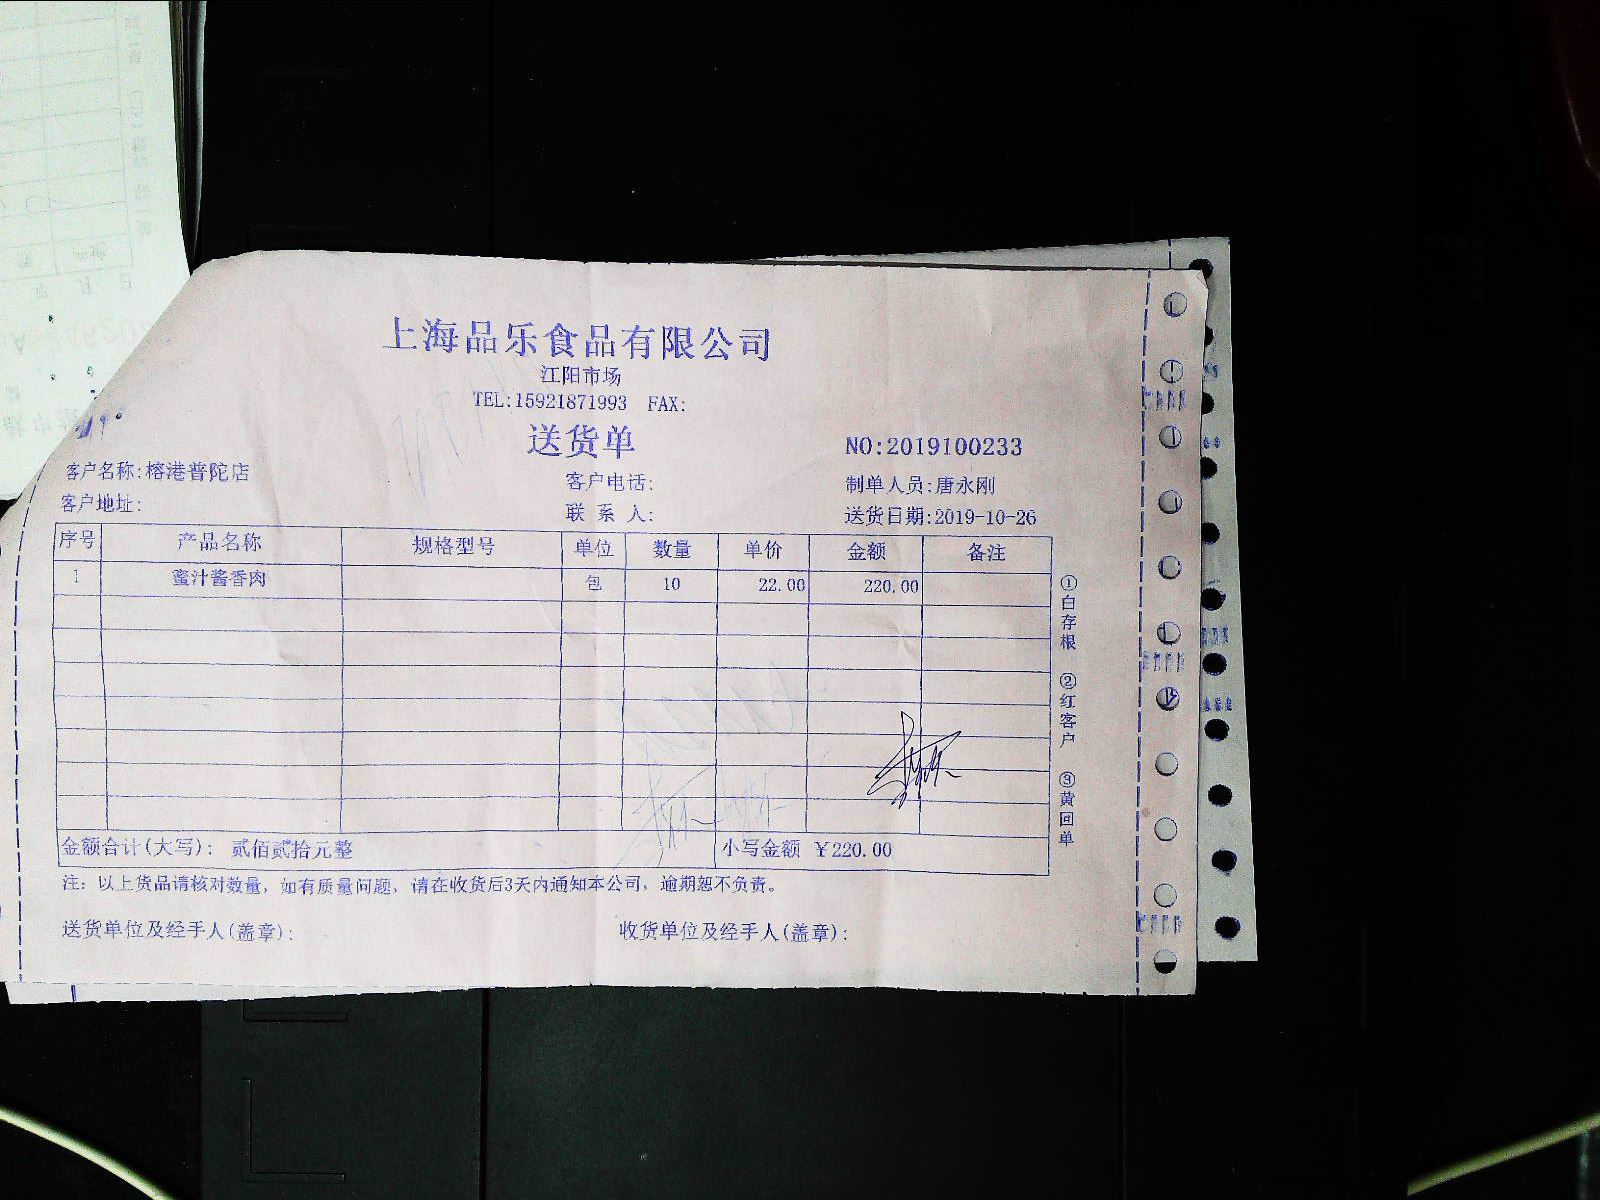 上海品乐食品有限公司
江阳市场
TEL:15921871993 FAX:
送货单
NO:2019100233
客户名称:榕港普陀店 客户电话: 制单人员:唐永刚
客户地址: 联系人: 送货日期:2019-10-26
序号 产品名称 规格型号 单位 数量 单价 金额 备注
1 蜜汁酱香肉 包 10 22.00 220.00
金额合计(大写): 贰佰贰拾元整 小写金额 ¥220.00
注: 以上货品请核对数量, 如有质量问题, 请在收货后3天内通知本公司, 逾期恕不负责。
送货单位及经手人(盖章): 收货单位及经手人(盖章):
①白存根 ②红客户 ③黄回单